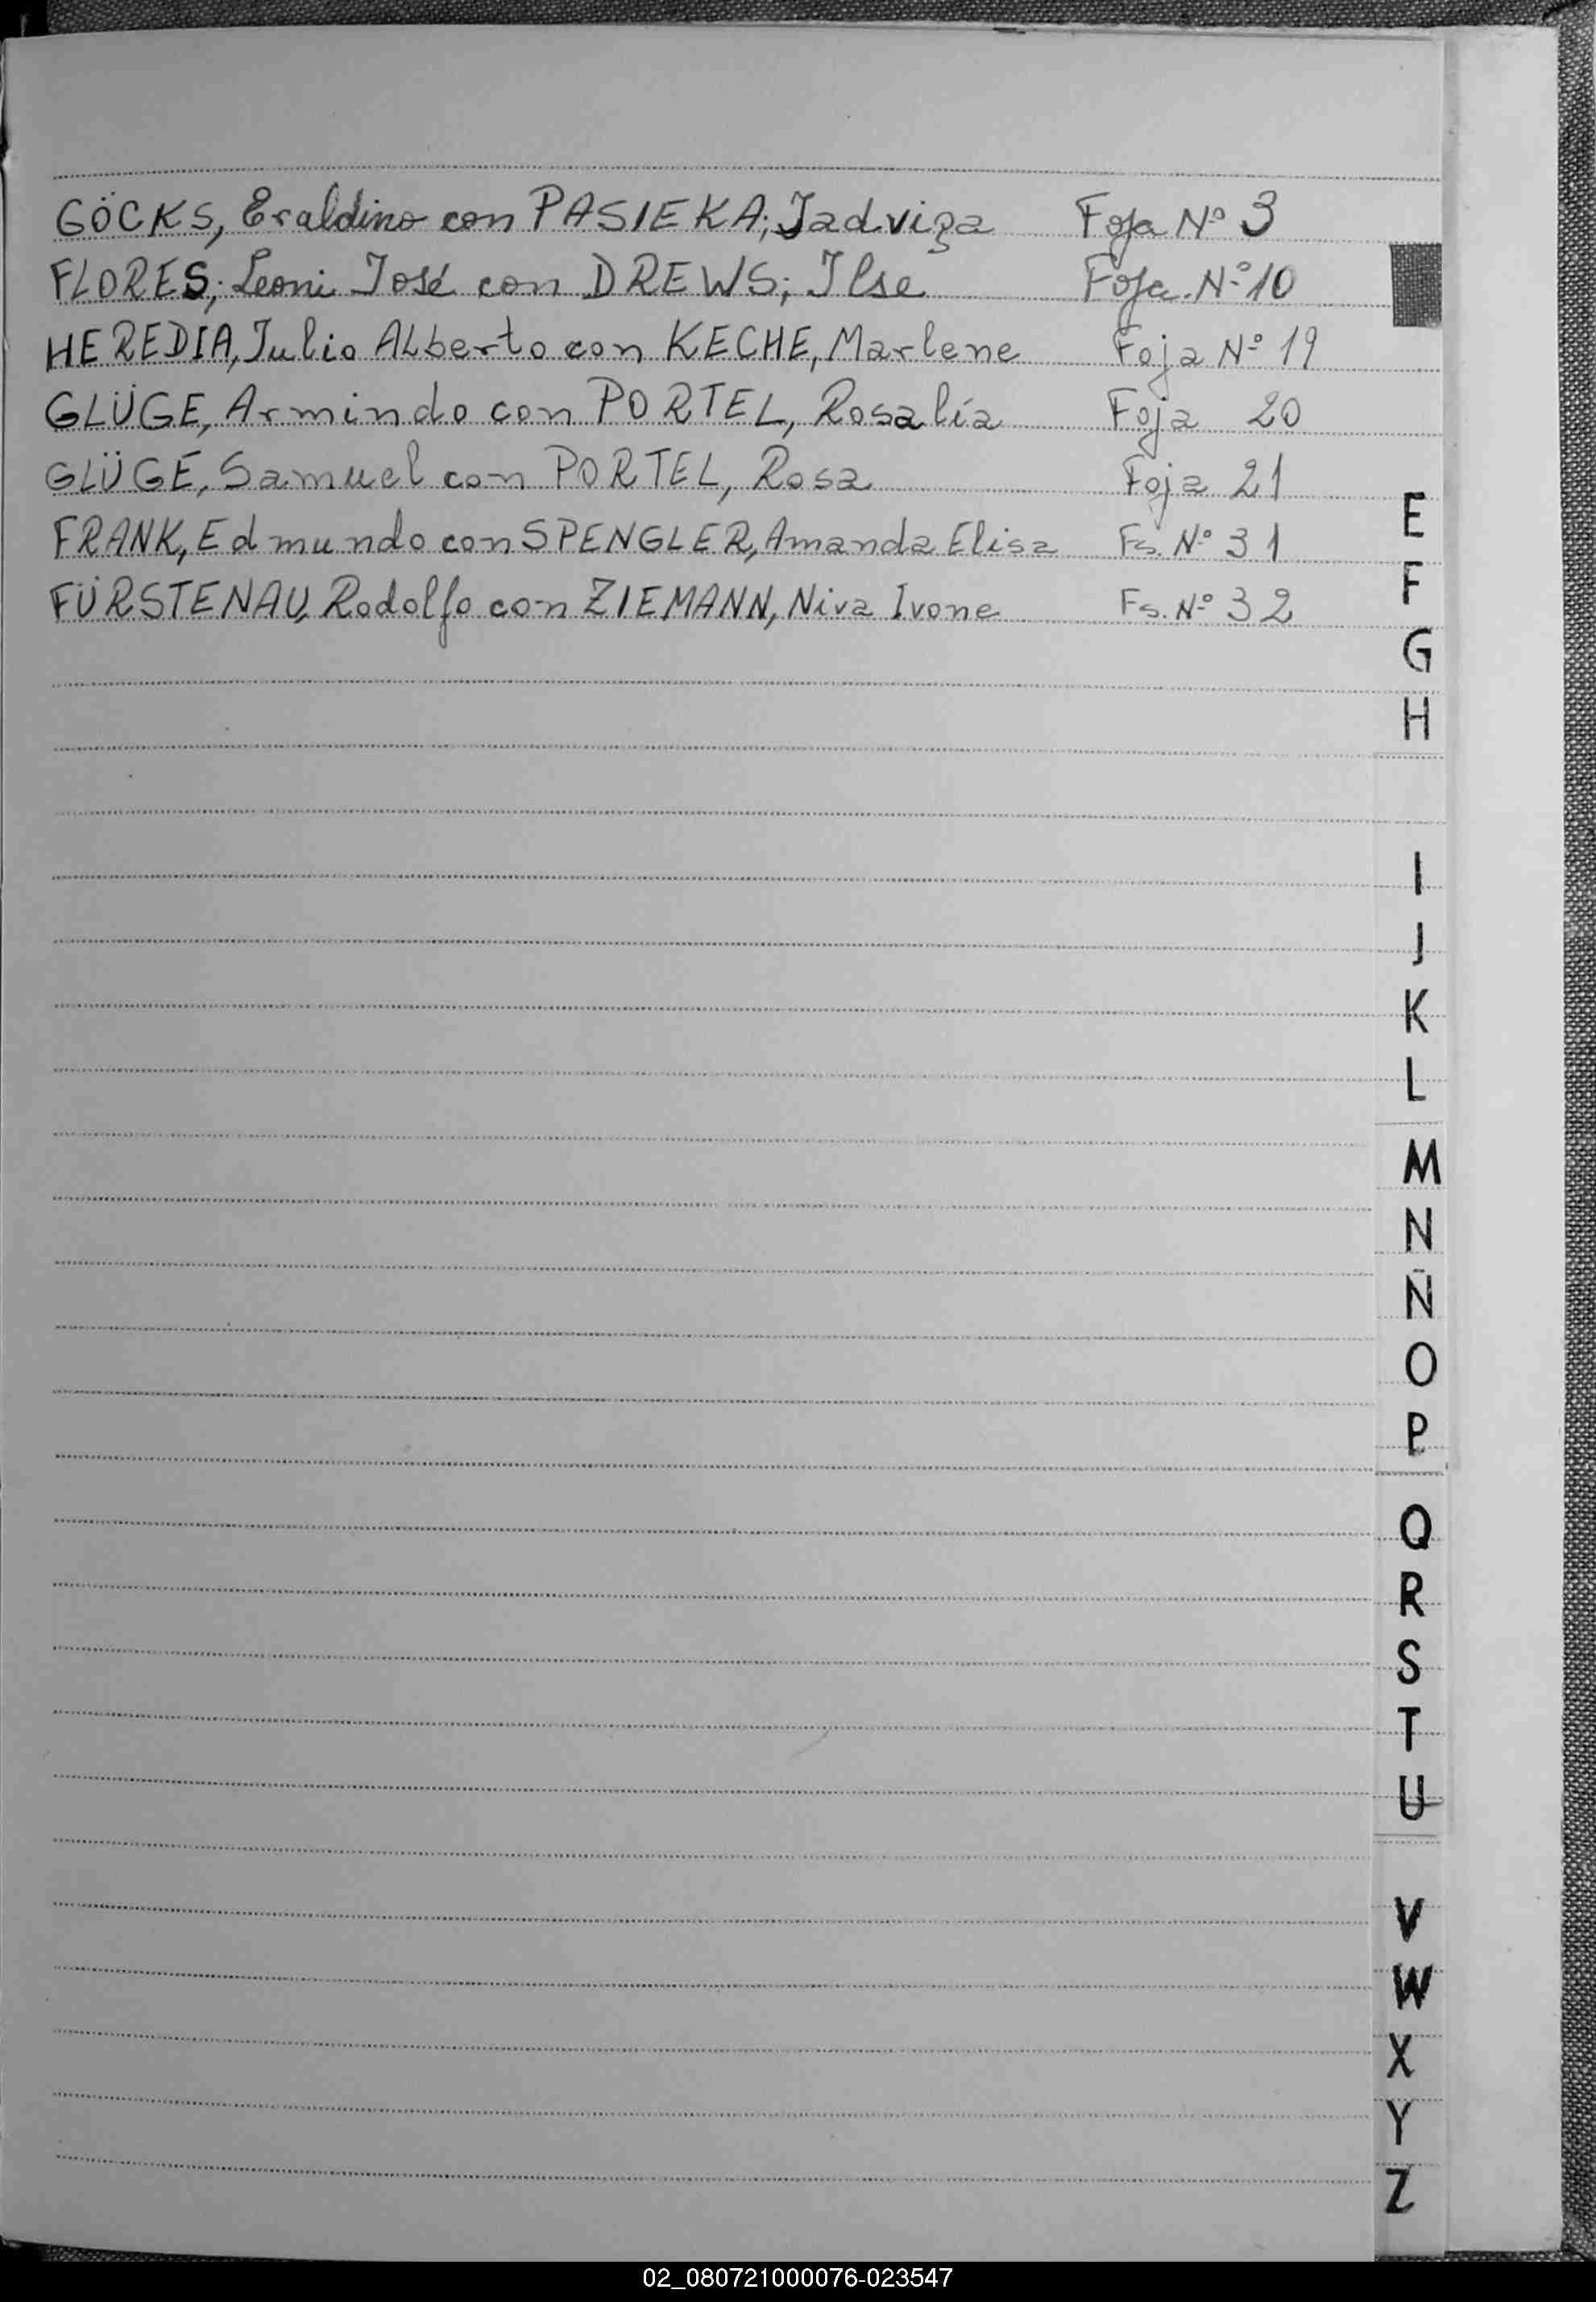 GÖCKS, Eraldino con PASIEKA; Jadviga Foja Nº 3
FLORES; Leoni José con DREWS; Ilse Foja Nº 10
HEREDIA, Julio ALberto con KECHE, Marlene Foja Nº 19
GLÜGE, Armindo con PORTEL, Rosalía Foja 20
GLÜGE, Samuel con PORTEL, Rosa Foja 21
FRANK, Edmundo con SPENGLER, Amanda Elisa Fs. Nº 31
FÜRSTENAU, Rodolfo con ZIEMANN, Niva Ivone Fs. Nº 32
E
F
G
H
I
J
K
L
M
N
Ñ
O
P
Q
R
S
T
U
V
W
X
Y
Z
02_080721000076-023547